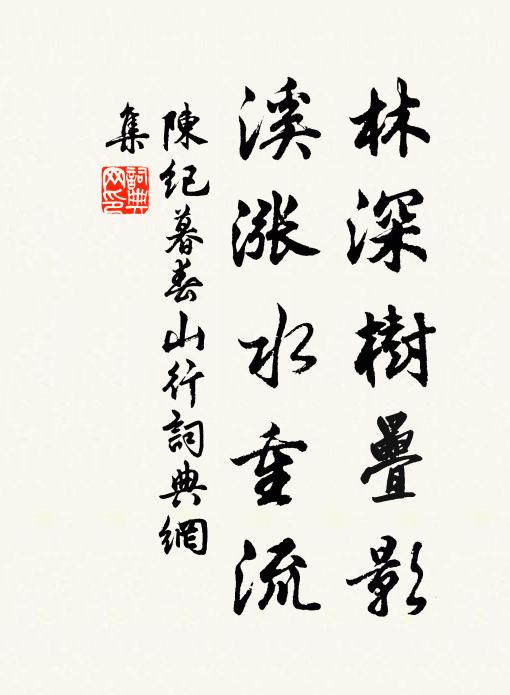 林深樹疊影
溪漲水重流
陳紀暮春山行詞典網
集
詞典
网印